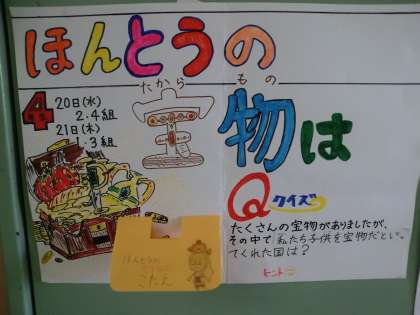 ほんとうの
たから もの
宝物は
4 20日(水)
2.4組
21日(木)
.3組
Qクイズ
たくさんの宝物がありましたが、
その中で私たち子供を宝物だといっ
てくれた国は?
ヒント
ほんとうの
こたえ